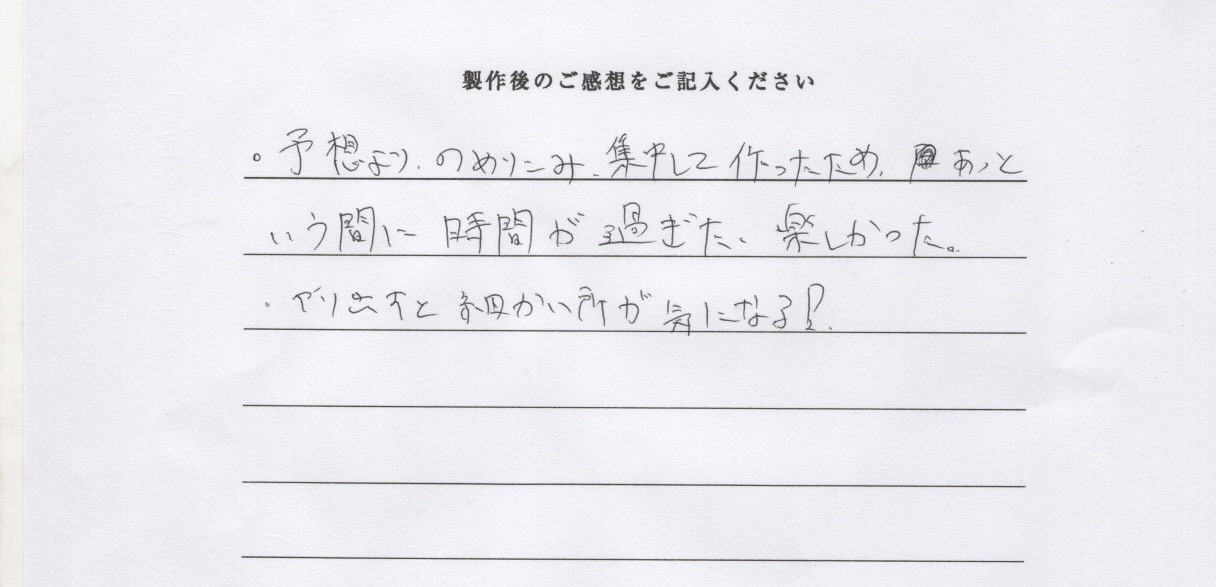 製作後のご感想をご記入ください
。予想より、のめりこみ、集中して作ったため、あっと
いう間に時間が過ぎた、楽しかった。
・やり出すと細かい所が気になる!?